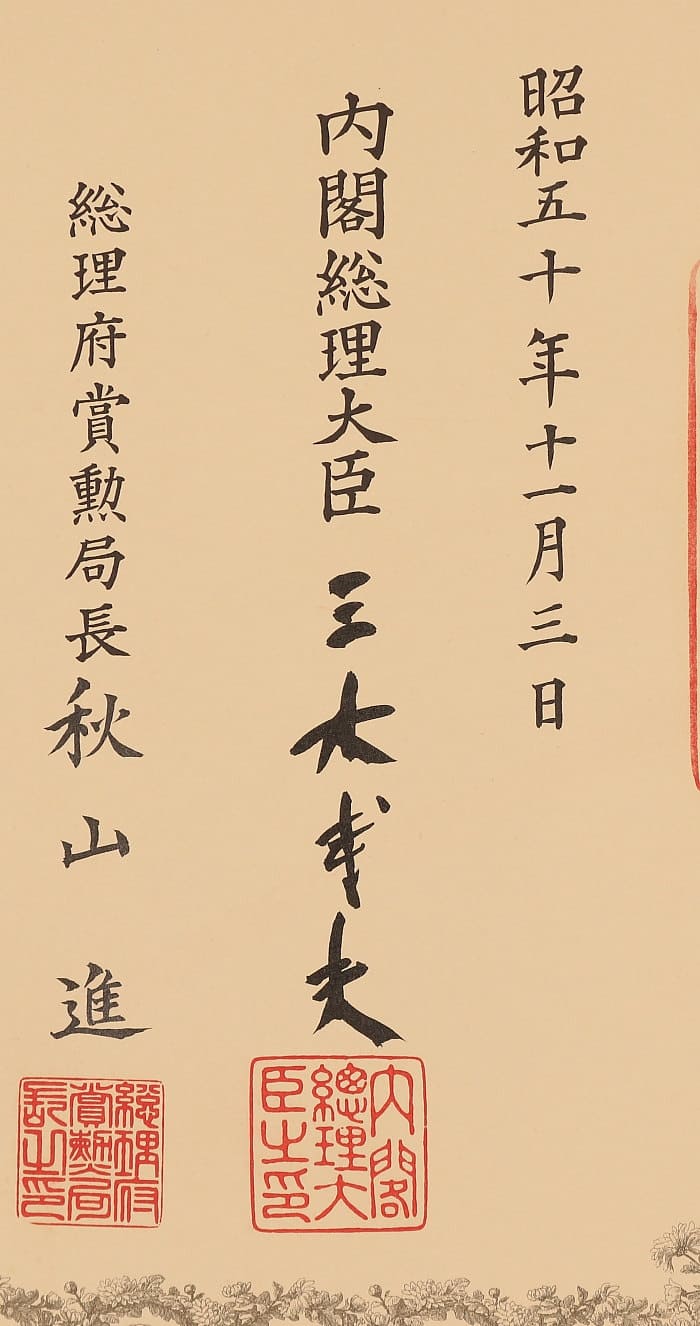 昭和五十年十一月三日
内閣総理大臣 三木武夫
総理府賞勲局長 秋山 進
内閣總理大臣之印
總理府賞勲局長之印